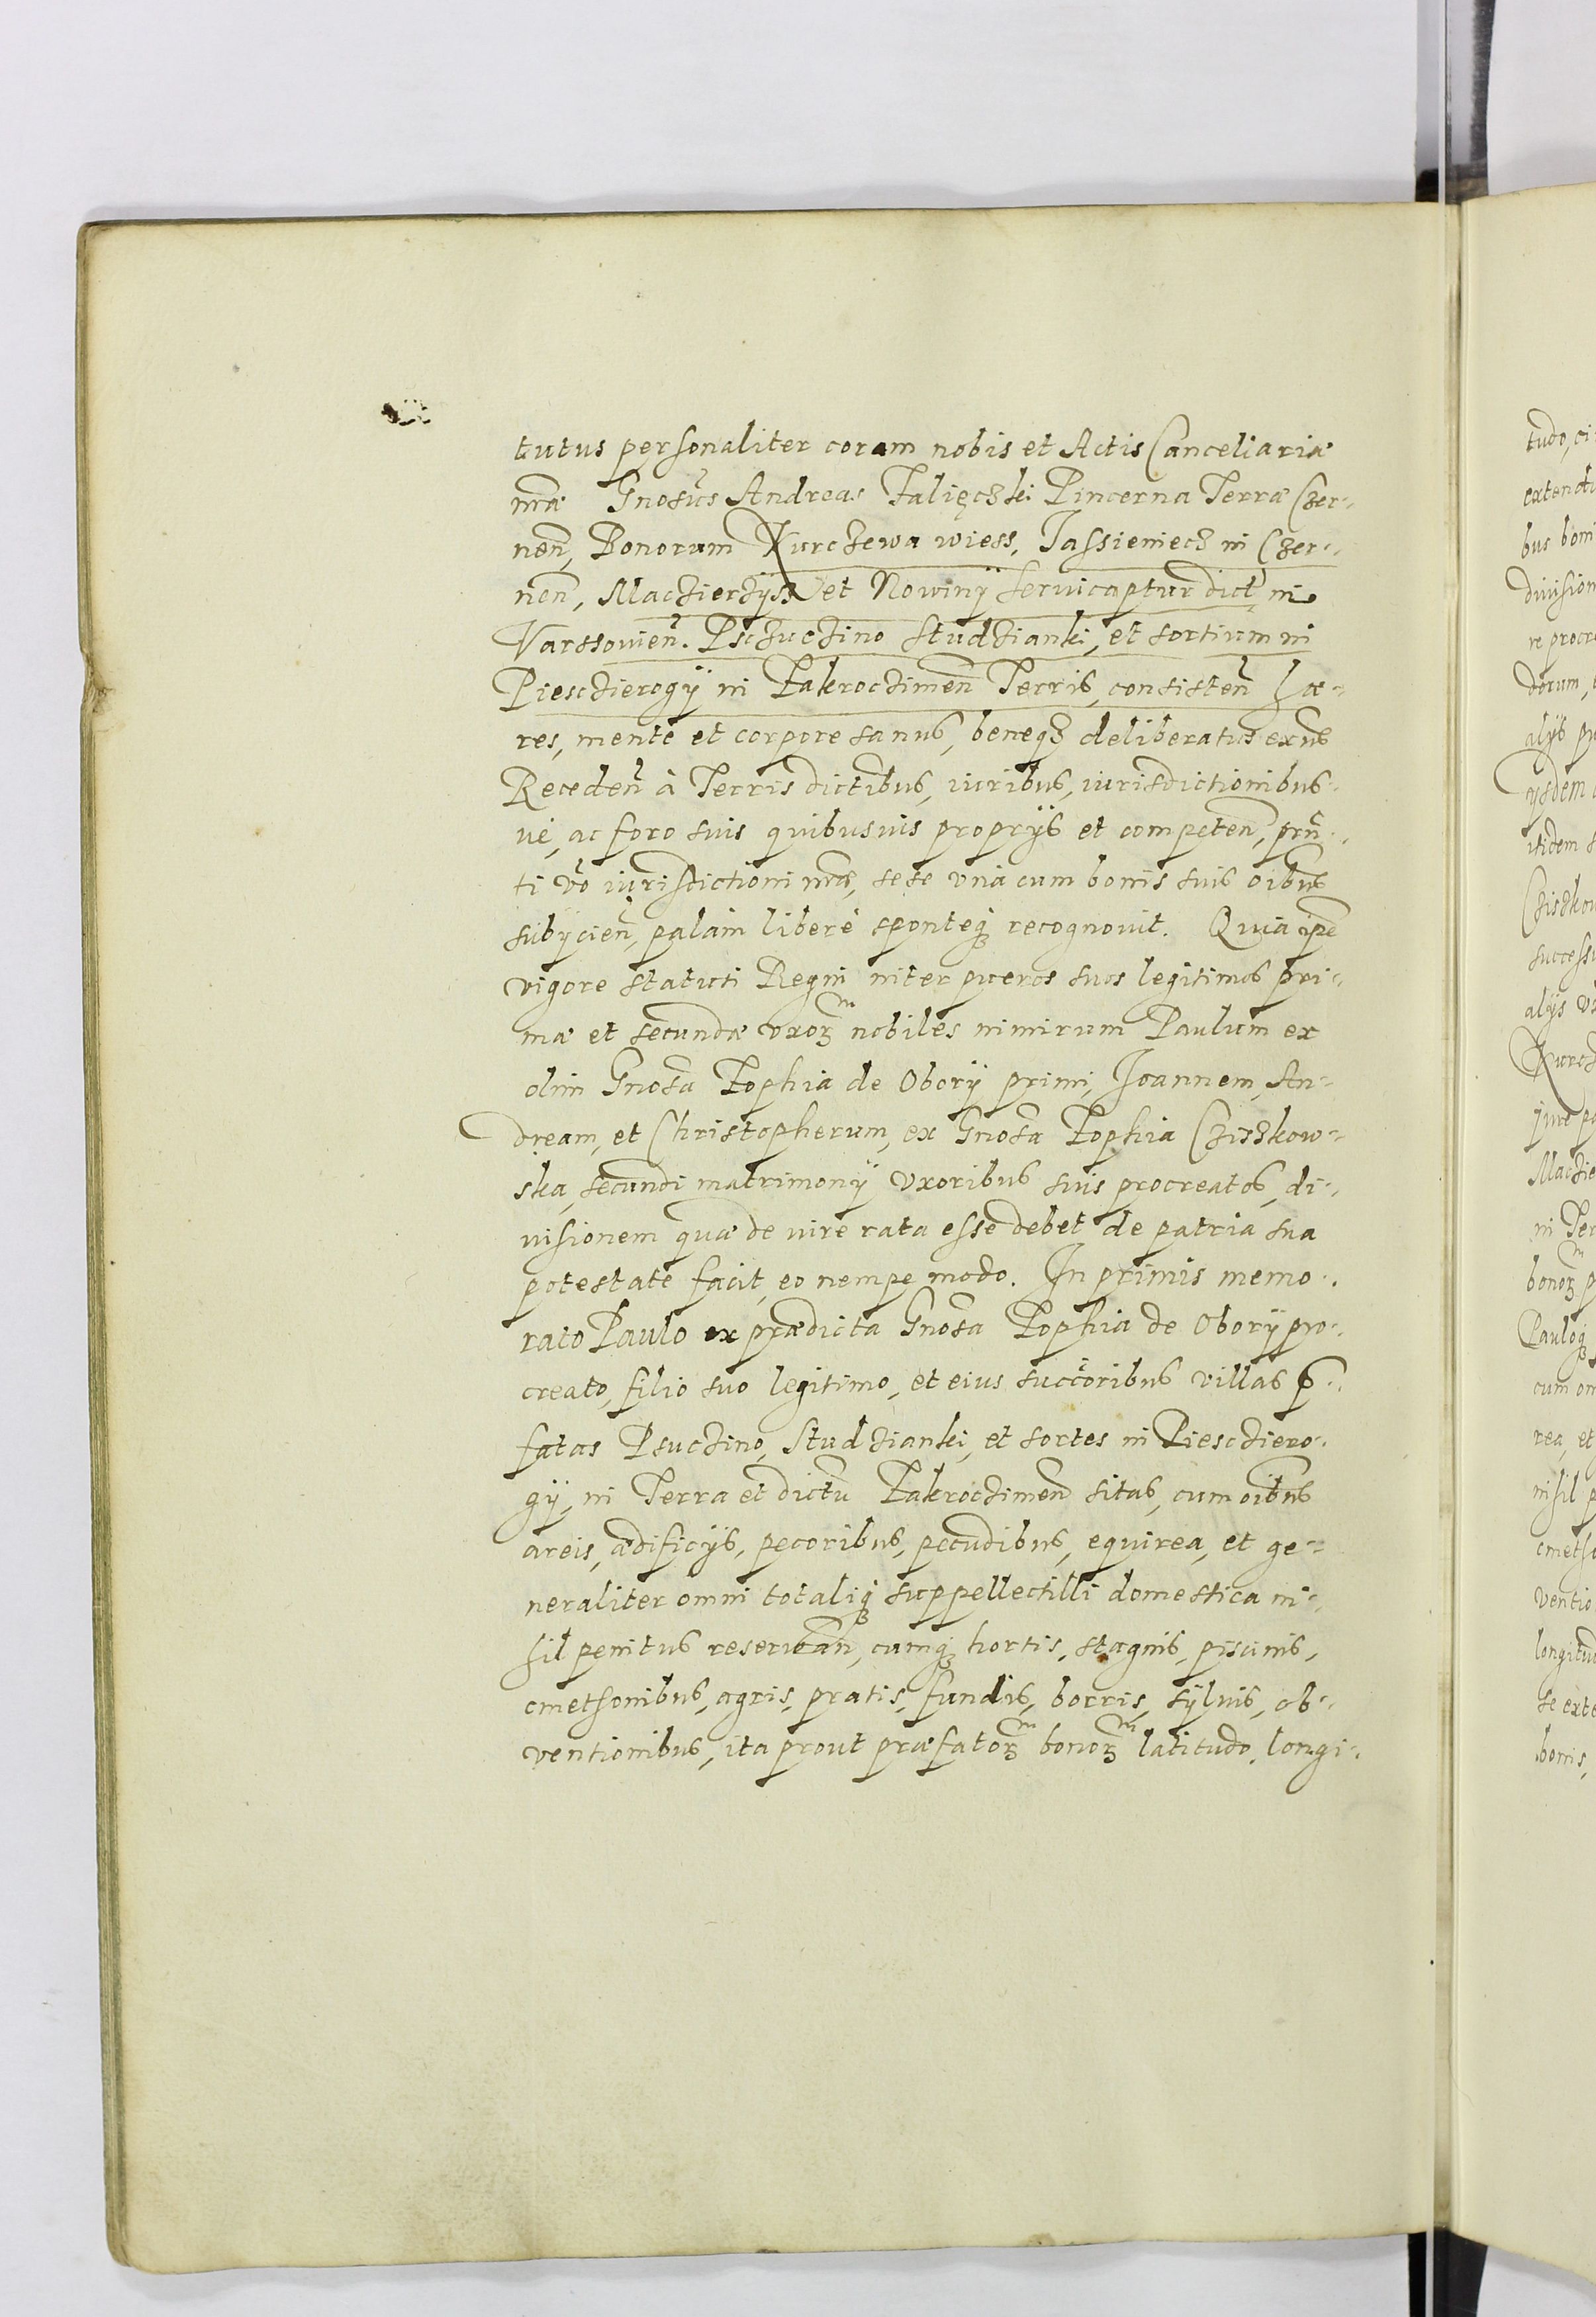 tutus personaliter coram nobis et Actis Cancellariæ
nræ Gnosus Andreas Zalięczki Pincerna Terræ Czer-
nen, Bonorum Kurczewa wiess, Jassieniecz in Czer-
nen, Maczierzysz et Nowiny seruicaptur dict, in
Varssouien. Psczuczino Studzianki, et sortium in
Piesczierogÿ in Zakroczimen Terris, consisten hæ-
res, mente et corpore sanus, beneqȝ deliberatus exns
Receden à Terris dictibus, iuribus, iurisdictionibus
ve, ac foro suis quibusuis proprÿs et competen, prn-
ti vo iurisdictioni nræ, sese vnà cum bonis suis oibus
subÿcien, palàm liberè sponteqȝ recognouit. Quia ipe
vigore statuti Regni inter pueros suos legitimos pri-
mæ et secundæ vxorȝ nobiles nimirum Paulum ex
olim Gnosa Zophia de Oborÿ primi, Joannem, An-
dream, et Christopherum, ex Gnosa Zophia Cziszkow-
ska, secundi matrimonÿ vxoribus suis procreatos, di-
uisionem quæ de iure rata esse debet de patria sua
potestate facit, eo nempe modo. In primis memo-
rato Paulo ex prædicta Gnosa Zophia de Oborÿ pro-
creato, filio suo legitimo, et eius succoribus villas p-
fatas Psuczino, Studzianki, et sortes in Piesczero-
gÿ, in Terra et dictu Zakroczimen sitas, cum oibus
areis, ædificÿs, pecoribus, pecudibus, equirea, et ge-
neraliter omni totaliqȝ suppellectilli domestica ni-
hil penitus reseruan, cumqȝ hortis, stagnis, piscinis,
cmethonibus, agris, pratis, fundis, borris, sÿluis, ob-
ventionibus, ita prout præfatorȝ bonorȝ latitudo, longi-